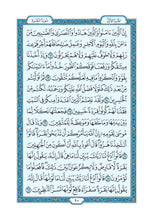 الجزء الأول سورة البقرة
إن الذين ءامنوا والذين هادوا والنصرى والصبئين
من ءامن بالله واليوم الآخر وعمل صلحا فلهم أجرهم عند
ربهم ولا خوف عليهم ولا هم يحزنون ٦٢ وإذ أخذنا
ميثقكم ورفعنا فوقكم الطور خذوا ما ءاتينكم بقوة
واذكروا ما فيه لعلكم تتقون ٦٣ ثم توليتم من بعد
ذلك فلولا فضل الله عليكم ورحمته لكنتم من
الخسرين ٦٤ ولقد علمتم الذين اعتدوا منكم في السبت
فقلنا لهم كونوا قردة خسئين ٦٥ فجعلنها نكلا لما
بين يديها وما خلفها وموعظة للمتقين ٦٦ وإذ قال
موسى لقومه إن الله يأمركم أن تذبحوا بقرة قالوا أتتخذنا
هزوا قال أعوذ بالله أن أكون من الجهلين ٦٧ قالوا ادع
لنا ربك يبين لنا ما هي قال إنه يقول إنها بقرة لا فارض
ولا بكر عوان بين ذلك فافعلوا ما تؤمرون ٦٨
قالوا ادع لنا ربك يبين لنا ما لونها قال إنه
يقول إنها بقرة صفراء فاقع لونها تسر النظرين ٦٩
١٠